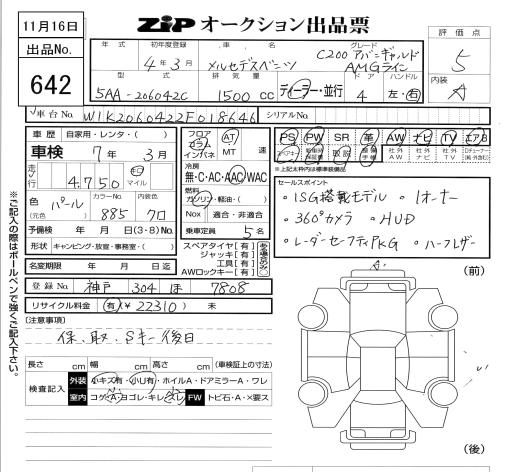 11月16日
出品No.
642
ZIP オークション出品票
評価点
5
内装
A
年式 初年度登録 車名 グレード
4年3月 メルセデスベンツ C200 アバンギャルド
AMGライン
型式 排気量 ドア ハンドル
5AA-206042C 1500 cc ディーラー・並行 4 左・右
車台No. W1K2060422F018646 シリアルNo.
車歴 自家用・レンタ・( )
車検 7年3月
走行 4,750 キロ マイル
色(元色) パール カラーNo. 885 内色 クロ
予備検 年 月 日(3・8)No.
形状 キャンピング・放宣・事務室・( )
名変期限 年 月 日迄
フロア コラム インパネ AT MT 速
冷房
無・C・AC・AAC・WAC
燃料
ガソリン・軽油・( )
Nox 適合・非適合
乗車定員 5名
スペアタイヤ【有】
ジャッキ【有】
工具【有】
AWロックキー【有】
PS PW SR 革 AW ナビ TV エアB
取説 社外AW 社外ナビ 社外TV
*上記太枠内は標準装備品
セールスポイント
・ISG搭載モデル ・1オーナー
・360°カメラ ・HUD
・レーダーセーフティPKG ・ハーフレザー
登録No. 神戸 304 ほ 7808
リサイクル料金 有(¥22310) 未
(注意事項)
保、取、Sキー後日
長さ cm 幅 cm 高さ cm (車検証上の寸法)
検査記入 外装 小キズ有・小U有・ホイルA・ドアミラーA・ワレ
室内 コゲA・ヨゴレ・キレ・スレ FW トビ石・A・×要ス
A
(前)
(後)
※ご記入の際はボールペンで強くご記入下さい。